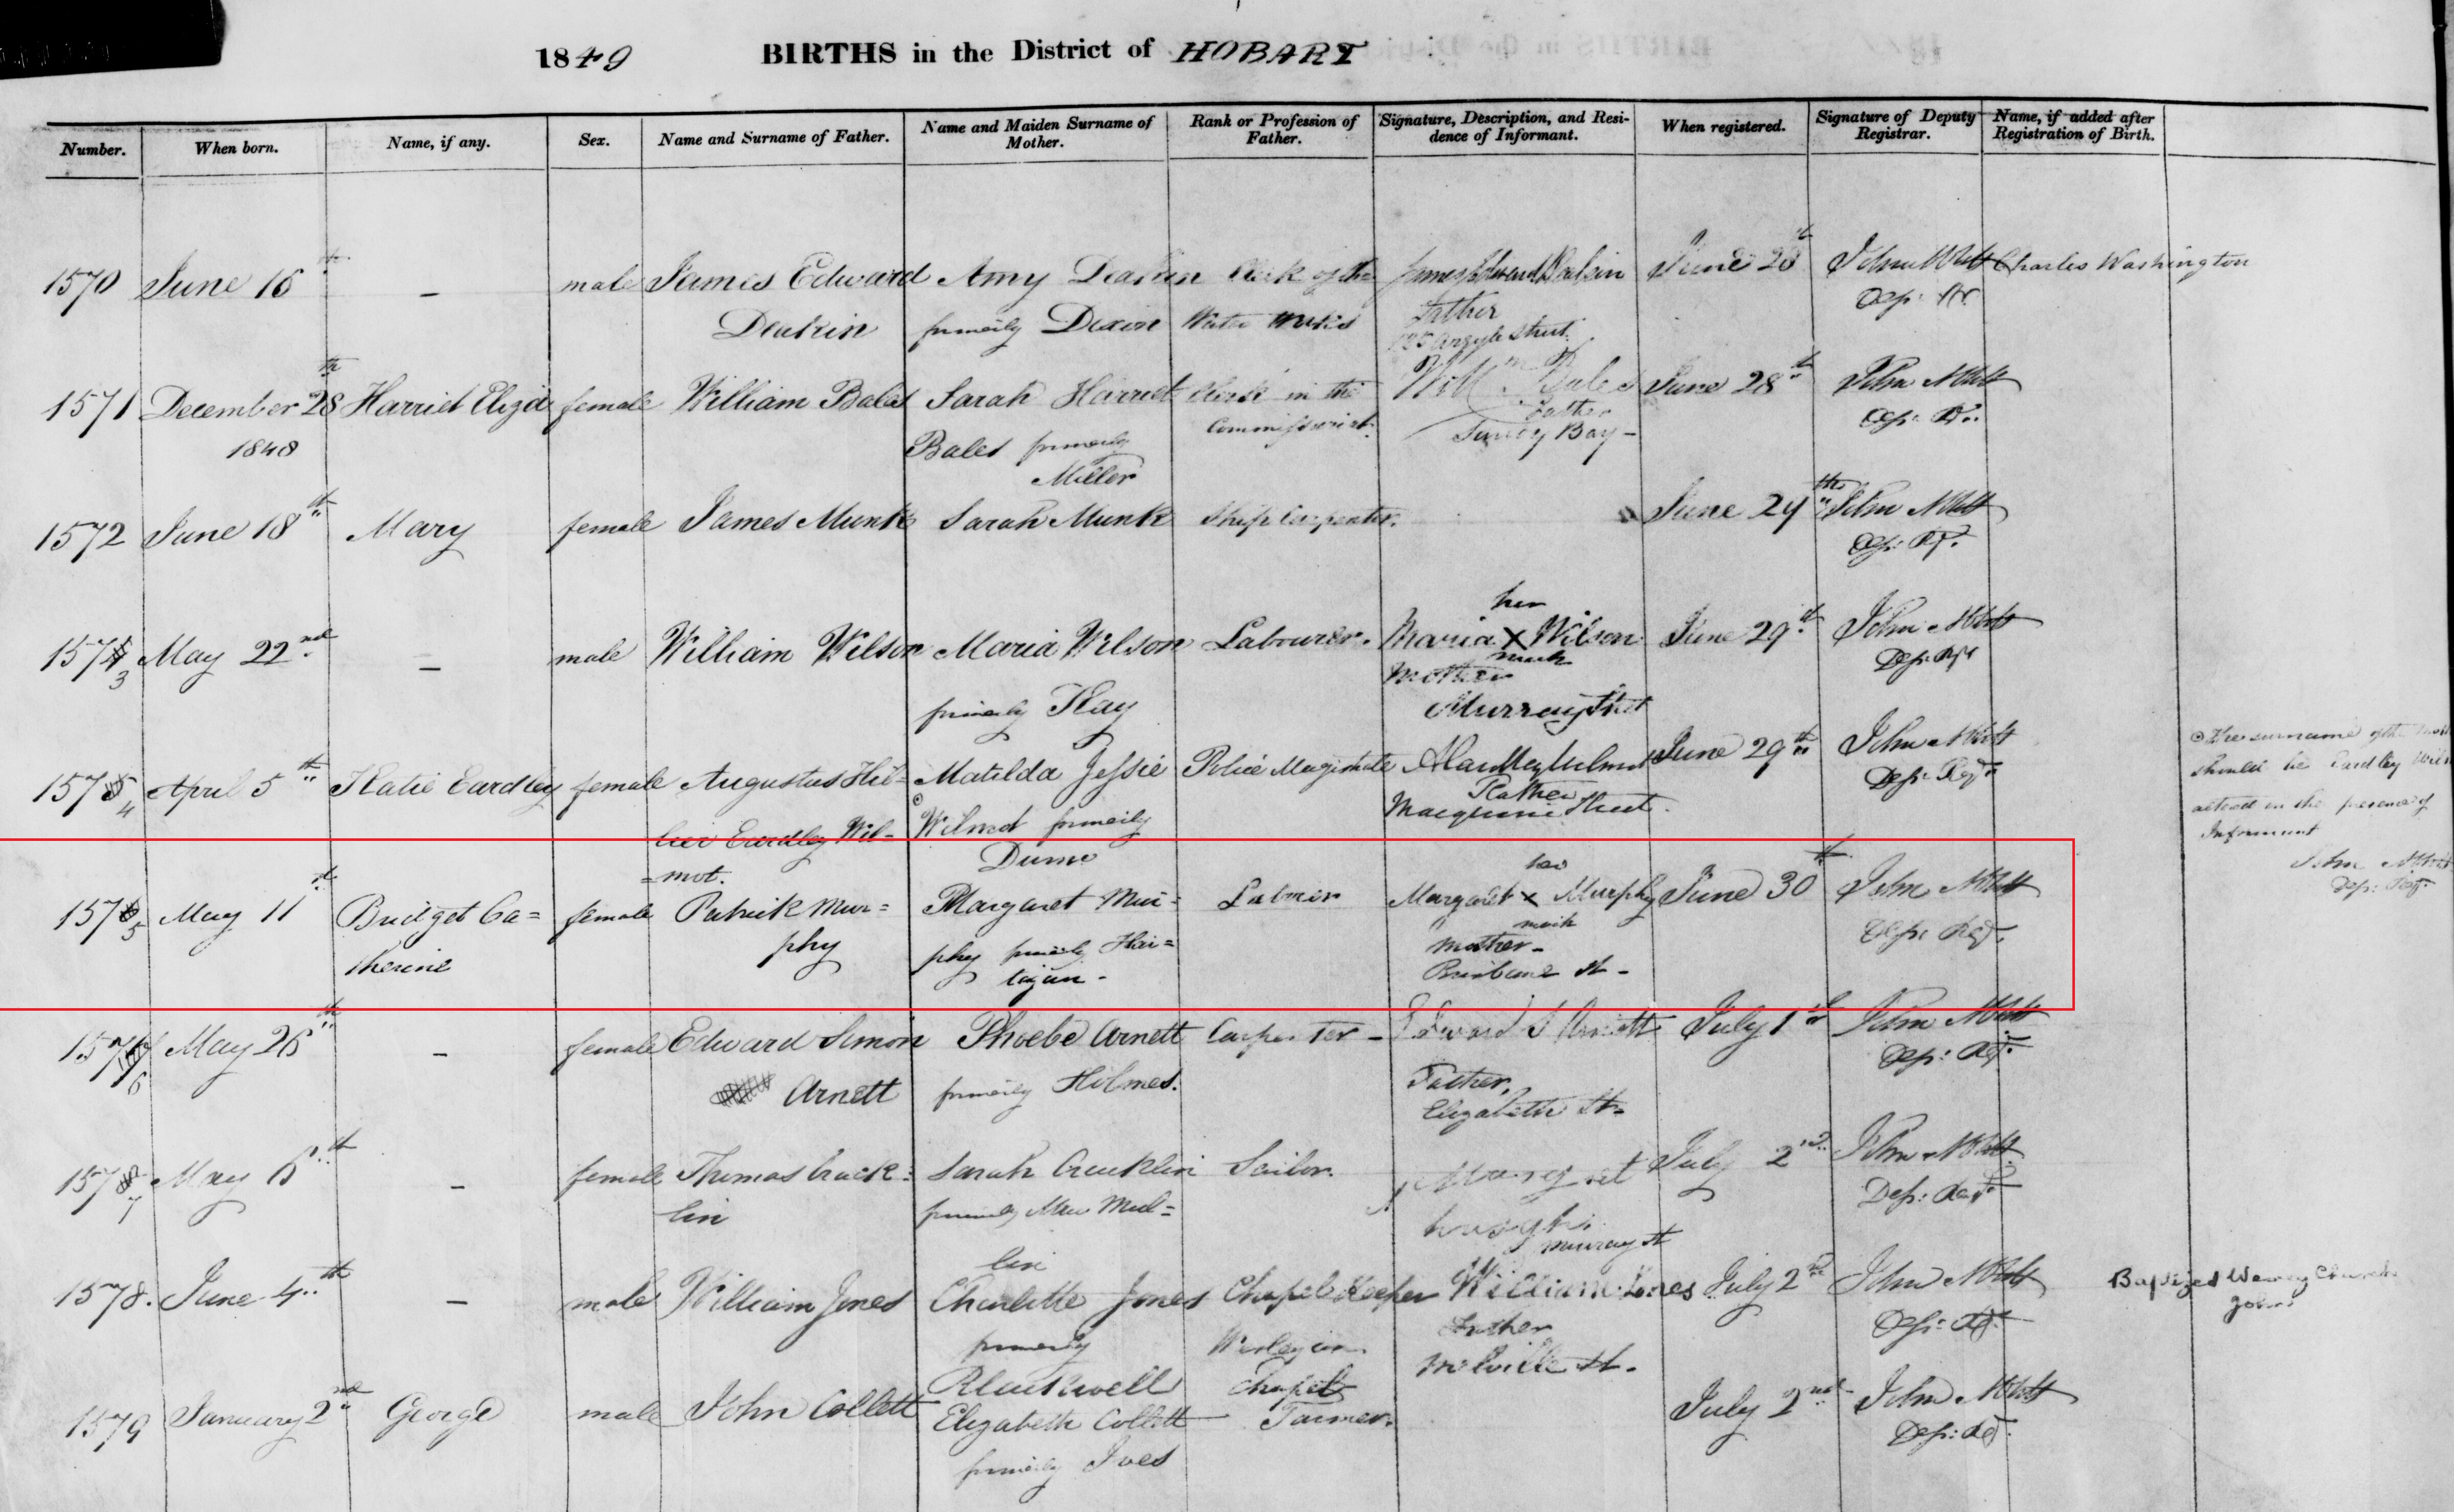 1849 BIRTHS in the District of HOBART
Number. When born. Name, if any. Sex. Name and Surname of Father. Name and Maiden Surname of Mother. Rank or Profession of Father. Signature, Description, and Residence of Informant. When registered. Signature of Deputy Registrar. Name, if added after Registration of Birth.
1570 June 16th — male James Edward Amy Deakin Clerk of the James Edward Deakin June 28th John Abbott Charles Washington
Deakin formerly Dixon Water Works Father Dep: Rr.
125 Argyle Street.
1571 December 28th Harriet Eliza female William Bales Sarah Harriet Clerk in the Willm Bales June 28th John Abbott
1848 Bales formerly Commissariat. Father Dep: Rr.
Miller Bay –
1572 June 18th Mary female James Munk Sarah Munk Ship Carpenter. June 29th John Abbott
Dep: Rr.
her
1573 May 22nd — male William Wilson Maria Wilson Labourer. Maria X Wilson June 29th John Abbott
mark
Mother Dep: Rgr
formerly Kay Murray Street
1574 April 5th Katie Eardley female Augustus Hil- Matilda Jessie Police Magistrate June 29th John Abbott
lier Eardley Wil- Wilmot formerly Father Dep: Regr.
=mot. Dunn Macquarie Street.
The surname of the
should be Eardley
in the presence of
Informant
John Abbott
Dep: Reg.
her
1575 May 11th Bridget Ca= female Patrick Mur= Margaret Mur= Labourer Margaret x Murphy June 30th John Abbott
therine phy phy formerly Har= mark Dep: Regr.
tigan – Mother –
Brisbane St –
1576 May 26th — female Edward Simon Phoebe Arnett Carpenter – Edward S Arnett July 1st John Abbott
Arnett formerly Holmes. Father, Dep: Regr.
Elizabeth St–
1577 May 6th — female Thomas Crack= Sarah Cracklin Sailor. Margaret July 2nd John Abbott
lin formerly Mc Mul= Dep: Regr.
lin Murray St
1578. June 4th — male William Jones Charlotte Jones Chapel Keeper William Jones July 2nd John Abbott Baptized Wesley Church
formerly Wesleyan Father Dep: Rgr. John
Blackwell Chapel Melville St–
1579 January 2nd George male John Collett Elizabeth Collett Farmer. July 2nd John Abbott
formerly Ives Dep: Rgr.